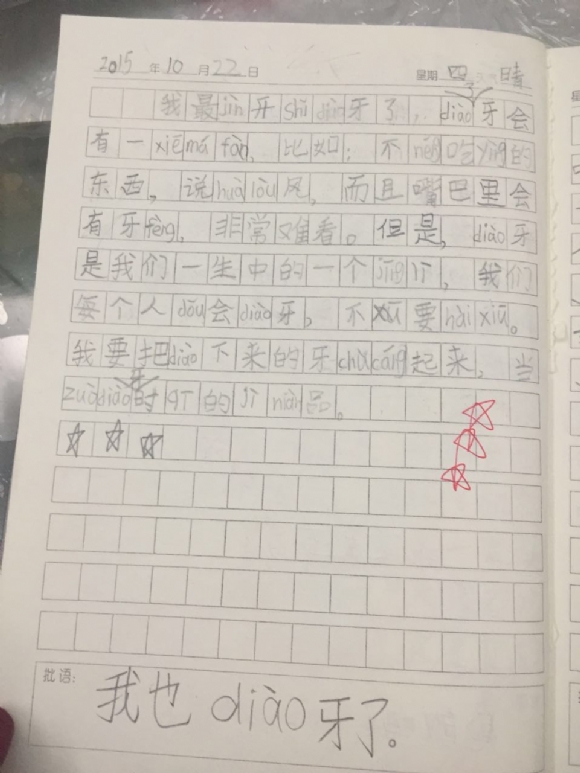 2015年10月22日 星期四 晴
我最jìn牙shì diào牙了，diào牙会
有一xiē má fàn，比如：不néng吃yìng的
东西，说huà lòu风，而且嘴巴里会
有牙fèng，非常难看。但是，diào牙
是我们一生中的一个jīng，我们
每个人dōu会diào牙，不xū要hài xiū。
我要把diào下来的牙chù cáng起来，当
zuò diào牙时的jì niàn品。
批语：
我也diào牙了。